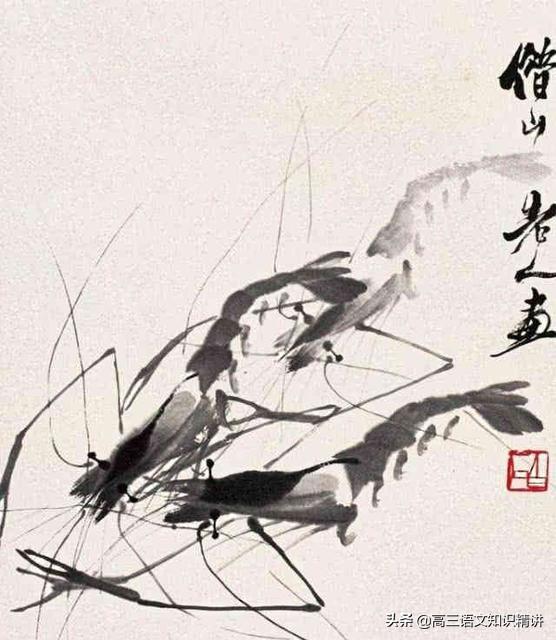 借山老人畫
头条 @高三语文知识精讲